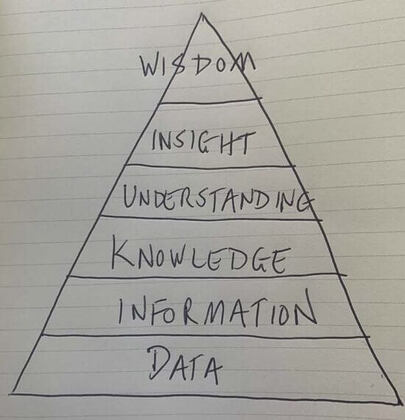 WISDOM
INSIGHT
UNDERSTANDING
KNOWLEDGE
INFORMATION
DATA